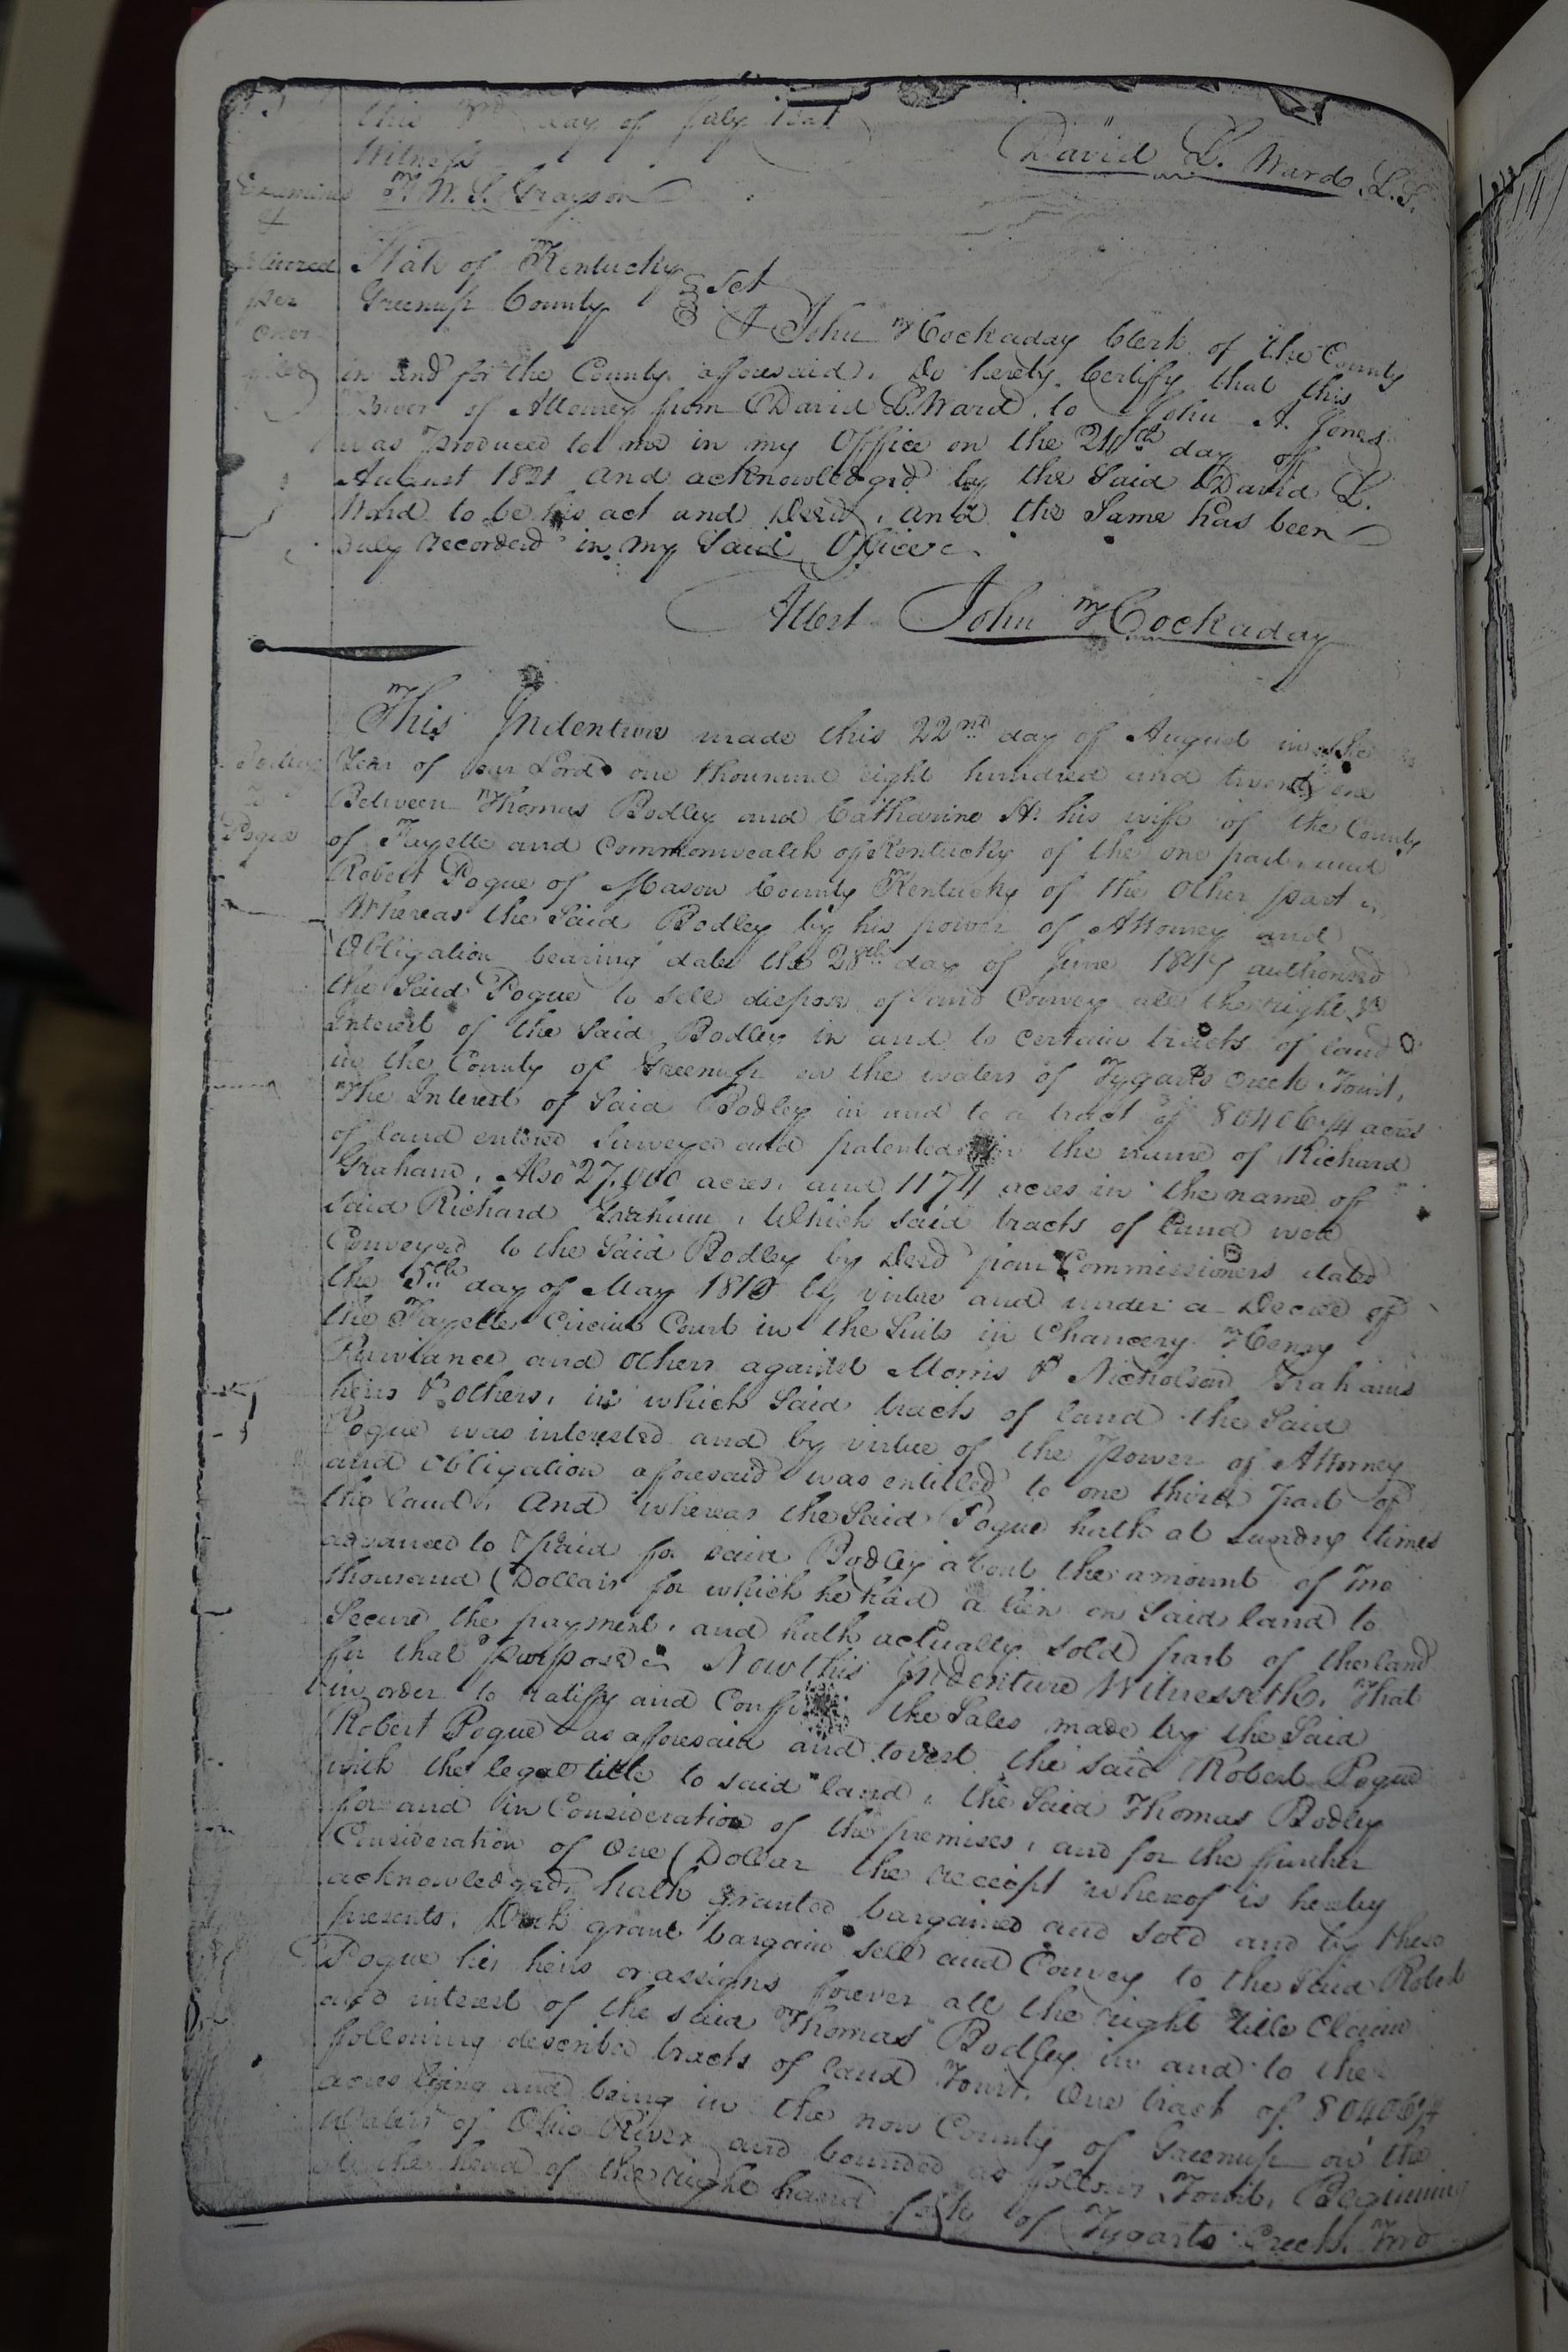 this 3rd day of July 1821
Witness
David L. Ward L.S.
T. W. S. Grayson
Examined
&
State of Kentucky
Greenup County Sct
per
I John Hockaday Clerk of the County
in and for the County afforesaid, Do hereby Certify that this
Power of Attorney from David L. Ward to John A. Jones
was produced to me in my Office on the 24th day of
August 1821 and acknowledged by the Said David L.
Ward to be his act and Deed, and the Same has been
duly recorded in my Said Office.
Attest John Hockaday
This Indenture made this 22nd day of August in the
Year of our Lord one thousand eight hundred and twenty one
Between Thomas Bodley and Catharine H. his wife of the County
of Fayette and Commonwealth of Kentucky of the one part, and
Robert Pogue of Mason County Kentucky of the Other part
Bodley
Pogue
Whereas the Said Bodley by his power of Attorney and
Obligation bearing date the 28th day of June authorised
the Said Pogue to sell dispose of and Convey all the right &
Interest of the Said Bodley in and to certain tracts of land
in the County of Greenup on the waters of Tygarts Creek Towit,
The Interest of Said Bodley in and to a tract of 80406¼ acres
of land entered Surveyed and patented in the name of Richard
Graham, Also 27,000 acres, and 1174 acres in the name of
said Richard Graham, Which said tracts of land were
Conveyed to the Said Bodley by Deed from Commissioners dated
the 5th day of May by virtue and under a Decree of
the Fayette Circuit Court in the Suits in Chancery Henry
Purviance and Others against Morris & Nicholson Grahams
heirs & others, in which Said tracts of land the Said
Pogue was interested and by virtue of the Power of Attorney
and obligation aforesaid was entitled to one third part of
the land, And whereas the Said Pogue hath at Sundry times
advanced to & paid for said Bodley about the amount of Two
thousand Dollars for which he had a lien on Said land to
Secure the payment, and hath actually sold part of the land
for that purpose Now this Indenture Witnesseth, That
in order to ratify and Confirm the Sales made by the Said
Robert Pogue as afforesaid and to vest the said Robert Pogue
with the legal title to said land, the Said Thomas Bodley
for and in Consideration of the premises, and for the further
Consideration of One Dollar the receipt whereof is hereby
acknowledged, hath granted bargained and sold and by these
presents, Doth grant bargain sell and Convey to the Said Robert
Pogue his heirs or assigns forever all the right title claim
and interest of the said Thomas Bodley in and to the
following described tracts of land Towit, One tract of 80406¼
acres lying and being in the now County of Greenup on the
Waters of Ohio River and bounded as follows Towit, Beginning
at the head of the right hand fork of Tygarts Creek, Two